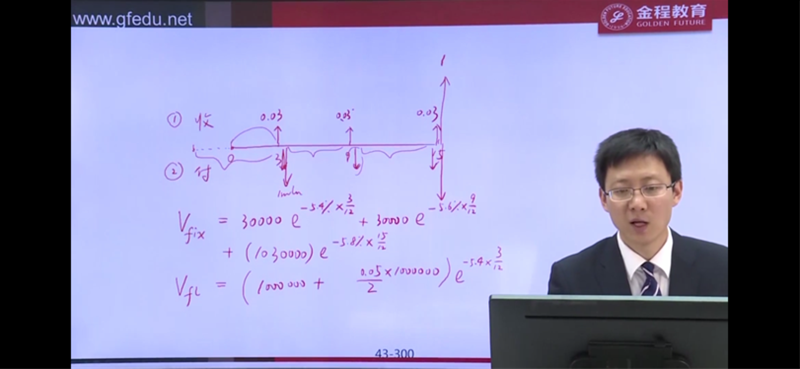 www.gfedu.net
金程教育
GOLDEN FUTURE
1
① 收 0.03 0.03 0.03
0 3 9 15
② 付
1million
V_fix = 30000 e^{-5.4% × 3/12} + 30000 e^{-5.6% × 9/12}
+ (1030000) e^{-5.8% × 15/12}
V_fl = (1000000 + 0.05 × 1000000 / 2) e^{-5.4 × 3/12}
43-300